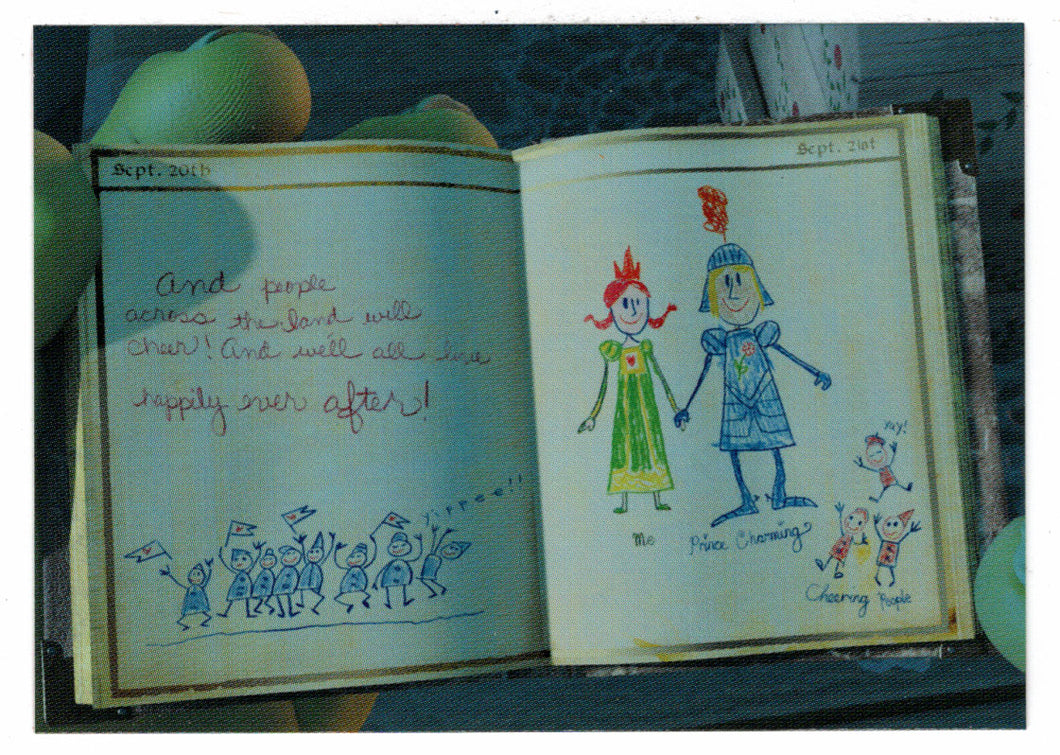 Sept. 20th
And people
across the land will
cheer! And we'll all live
happily ever after!
yippee!!
Sept. 21st
Me
Prince Charming
Yay!
Cheering People